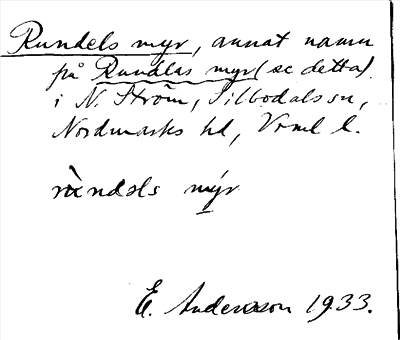 Rundels myr, annat namn
på Rundlas myr (se detta)
i N. Ström, Silbodals sn,
Nordmarks hd, Vrml l.
rὰndəls myr
E. Andersson 1933.